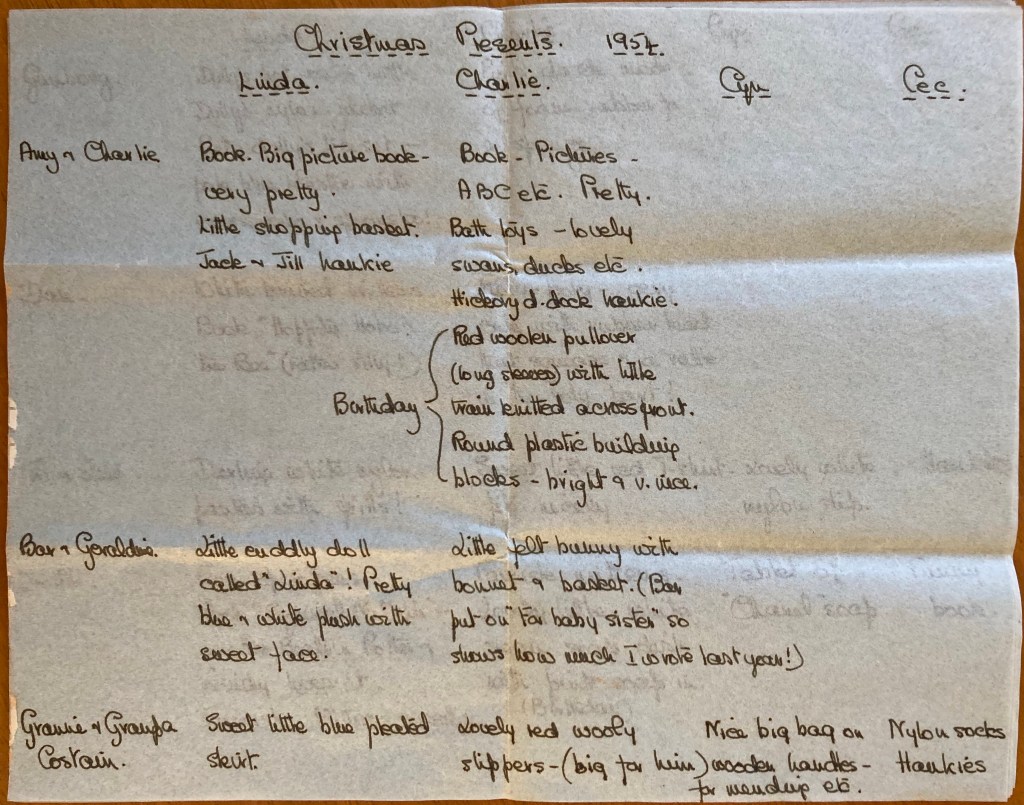 Christmas Presents. 1954.
Linda. Charlie. Cyn Cec.
Amy & Charlie Book. Big picture book - Book - Pictures -
very pretty. ABC etc. Pretty.
Little shopping basket. Bath toys - lovely
Jack & Jill hankie swans, ducks etc.
Hickory d. dock hankie.
Red woolen pullover
(long sleeves) with little
Birthday train knitted across front.
Round plastic building
blocks - bright & v. nice.
Bar & Geraldine. Little cuddly doll Little felt bunny with
called "Linda"! Pretty bonnet & basket. (Bar
blue & white plush with put on "For baby sister" so
sweet face. shows how much I wrote last year!)
Grannie & Grandpa Sweet little blue pleated Lovely red wooly Nice big bag on Nylon socks
Costain. skirt. slippers - (big for him) wooden handles - Hankies
for mending etc.